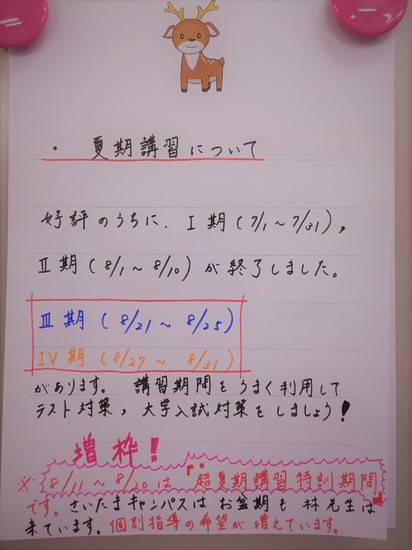 ・ 夏期講習について
好評のうちに、Ⅰ期(7/1～7/31)，
Ⅱ期(8/1～8/10)が終了しました。
Ⅲ期(8/21～8/25)
Ⅳ期(8/27～8/31)
があります。講習期間をうまく利用して
テスト対策，大学入試対策をしましょう!
増枠!
※8/11～8/20は『超夏期講習特別期間』
です。さいたまキャンパスはお盆期も林先生は
来ています。個別指導の希望が増えています。